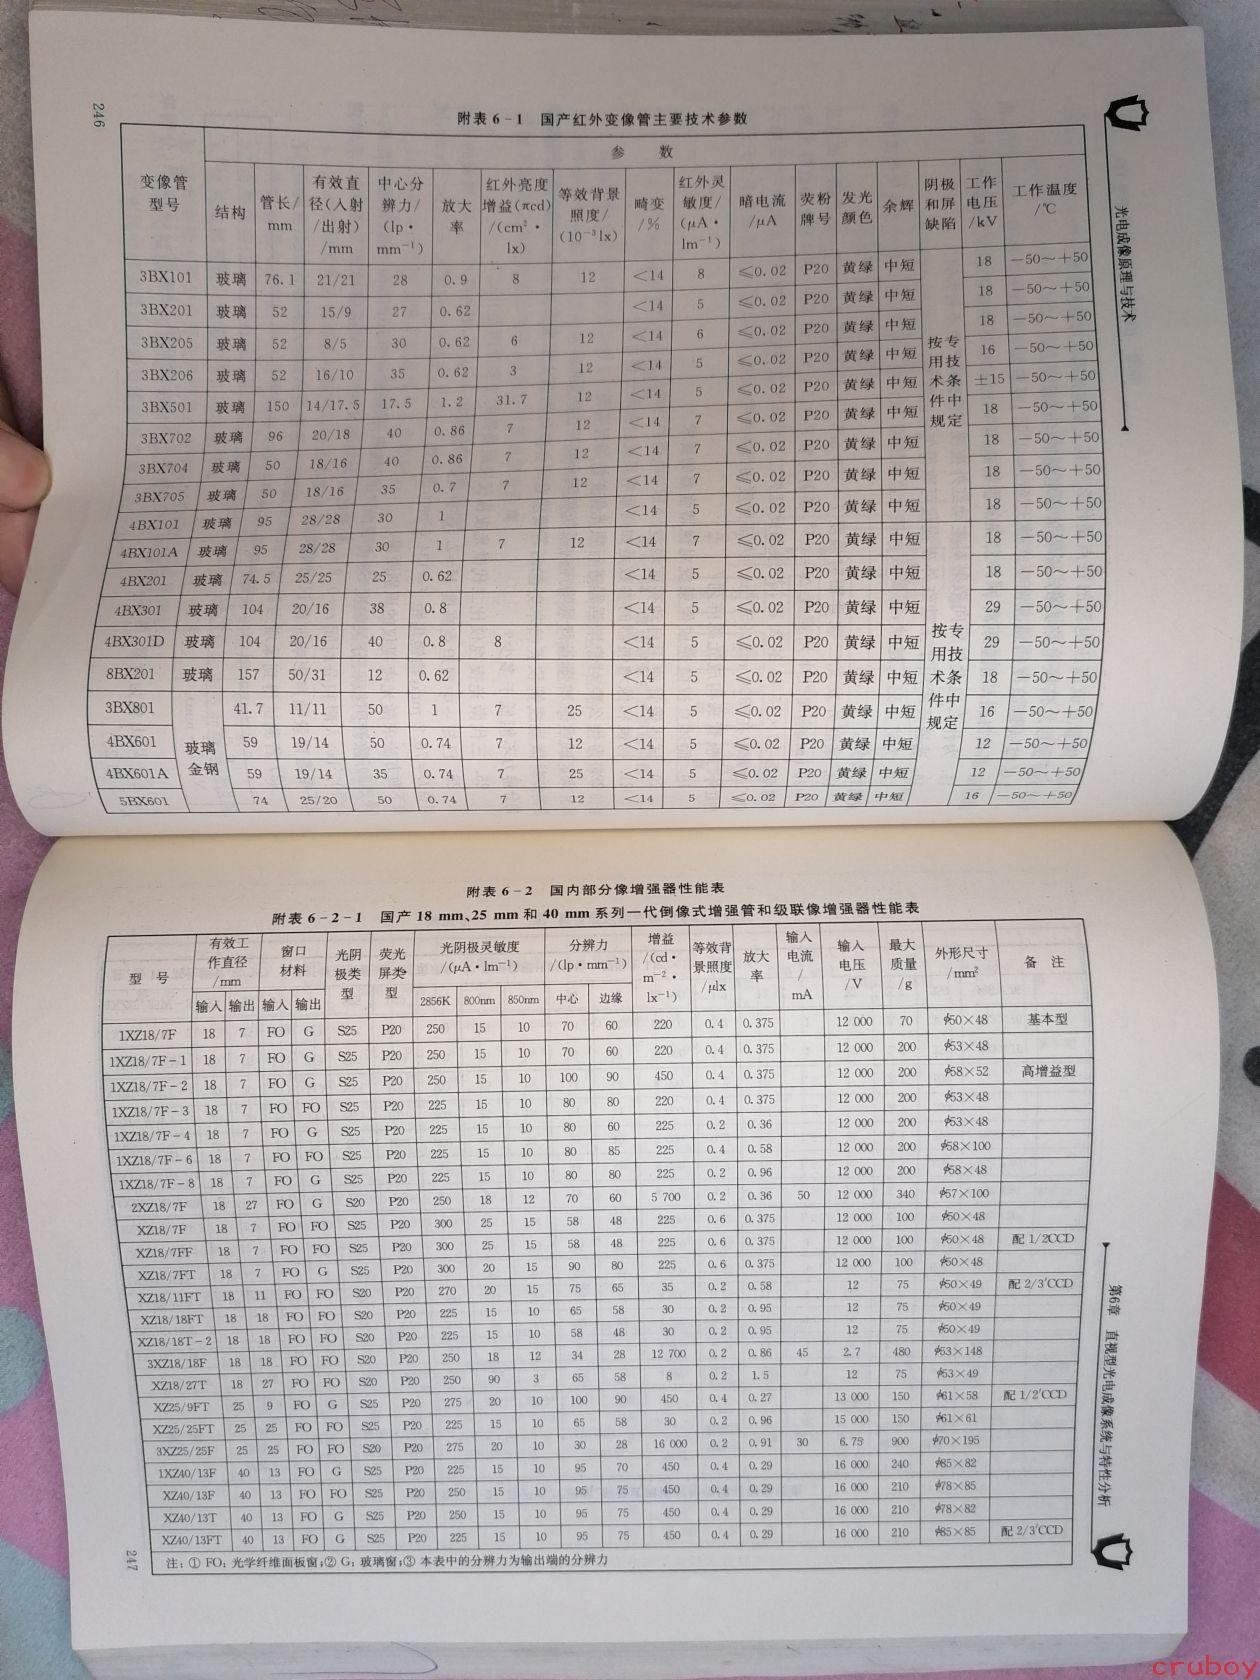 246
附表 6-1 国产红外变像管主要技术参数
变像管型号 参 数
结构 管长/mm 有效直径(入射/出射)/mm 中心分辨力/(lp·mm⁻¹) 放大率 红外亮度增益(πcd)/(cm²·lx) 等效背景照度/(10⁻³lx) 畸变/% 红外灵敏度/(μA·lm⁻¹) 暗电流/μA 荧粉牌号 发光颜色 余辉 阴极和屏缺陷 工作电压/kV 工作温度/℃
3BX101 玻璃 76.1 21/21 28 0.9 8 12 <14 8 ≤0.02 P20 黄绿 中短 18 -50～+50
3BX201 玻璃 52 15/9 27 0.62 <14 5 ≤0.02 P20 黄绿 中短 18 -50～+50
3BX205 玻璃 52 8/5 30 0.62 6 12 <14 6 ≤0.02 P20 黄绿 中短 18 -50～+50
3BX206 玻璃 52 16/10 35 0.62 3 12 <14 5 ≤0.02 P20 黄绿 中短 16 -50～+50
3BX501 玻璃 150 14/17.5 17.5 1.2 31.7 12 <14 5 ≤0.02 P20 黄绿 中短 按专用技术条件中规定 ±15 -50～+50
3BX702 玻璃 96 20/18 40 0.86 7 12 <14 7 ≤0.02 P20 黄绿 中短 18 -50～+50
3BX704 玻璃 50 18/16 40 0.86 7 12 <14 7 ≤0.02 P20 黄绿 中短 18 -50～+50
3BX705 玻璃 50 18/16 35 0.7 7 12 <14 7 ≤0.02 P20 黄绿 中短 18 -50～+50
4BX101 玻璃 95 28/28 30 1 <14 5 ≤0.02 P20 黄绿 中短 18 -50～+50
4BX101A 玻璃 95 28/28 30 1 7 12 <14 7 ≤0.02 P20 黄绿 中短 18 -50～+50
4BX201 玻璃 74.5 25/25 25 0.62 <14 5 ≤0.02 P20 黄绿 中短 18 -50～+50
4BX301 玻璃 104 20/16 38 0.8 <14 5 ≤0.02 P20 黄绿 中短 29 -50～+50
4BX301D 玻璃 104 20/16 40 0.8 8 <14 5 ≤0.02 P20 黄绿 中短 按专用技术条件中规定 29 -50～+50
8BX201 玻璃 157 50/31 12 0.62 <14 5 ≤0.02 P20 黄绿 中短 18 -50～+50
3BX801 玻璃金钢 41.7 11/11 50 1 7 25 <14 5 ≤0.02 P20 黄绿 中短 16 -50～+50
4BX601 59 19/14 50 0.74 7 12 <14 5 ≤0.02 P20 黄绿 中短 12 -50～+50
4BX601A 59 19/14 35 0.74 7 25 <14 5 ≤0.02 P20 黄绿 中短 12 -50～+50
5BX601 74 25/20 50 0.74 7 12 <14 5 ≤0.02 P20 黄绿 中短 16 -50～+50
光电成像原理与技术
附表 6-2 国内部分像增强器性能表
附表 6-2-1 国产 18 mm、25 mm 和 40 mm 系列一代倒像式增强管和级联像增强器性能表
型 号 有效工作直径/mm 窗口材料 光阴极类型 荧光屏类型 光阴极灵敏度/(μA·lm⁻¹) 分辨力/(lp·mm⁻¹) 增益/(cd·m⁻²·lx⁻¹) 等效背景照度/μlx 放大率 输入电流/mA 输入电压/V 最大质量/g 外形尺寸/mm² 备 注
输入 输出 输入 输出 2856K 800nm 850nm 中心 边缘
1XZ18/7F 18 7 FO G S25 P20 250 15 10 70 60 220 0.4 0.375 12 000 70 φ50×48 基本型
1XZ18/7F-1 18 7 FO G S25 P20 250 15 10 70 60 220 0.4 0.375 12 000 200 φ53×48
1XZ18/7F-2 18 7 FO G S25 P20 250 15 10 100 90 450 0.4 0.375 12 000 200 φ58×52 高增益型
1XZ18/7F-3 18 7 FO FO S25 P20 225 15 10 80 80 220 0.4 0.375 12 000 200 φ53×48
1XZ18/7F-4 18 7 FO G S25 P20 225 15 10 80 60 225 0.2 0.36 12 000 200 φ53×48
1XZ18/7F-6 18 7 FO FO S25 P20 225 15 10 80 85 225 0.4 0.58 12 000 200 φ58×100
1XZ18/7F-8 18 7 FO G S25 P20 225 15 10 80 80 225 0.2 0.96 12 000 200 φ58×48
2XZ18/7F 18 27 FO G S20 P20 250 18 12 70 60 5 700 0.2 0.36 50 12 000 340 φ57×100
XZ18/7F 18 7 FO FO S25 P20 300 25 15 58 48 225 0.6 0.375 12 000 100 φ50×48
XZ18/7FF 18 7 FO FO S25 P20 300 25 15 58 48 225 0.6 0.375 12 000 100 φ50×48 配 1/2CCD
XZ18/7FT 18 7 FO G S25 P20 300 20 15 90 80 225 0.6 0.375 12 000 100 φ50×48
XZ18/11FT 18 11 FO FO S20 P20 270 20 15 75 65 35 0.2 0.58 12 75 φ50×49 配 2/3′CCD
XZ18/18FT 18 18 FO FO S20 P20 225 15 10 65 58 30 0.2 0.95 12 75 φ50×49
XZ18/18T-2 18 18 FO FO S20 P20 225 15 10 58 48 30 0.2 0.95 12 75 φ50×49
3XZ18/18F 18 18 FO FO S20 P20 250 18 12 34 28 12 700 0.2 0.86 45 2.7 480 φ53×148
XZ18/27T 18 27 FO FO S20 P20 250 90 3 65 58 8 0.2 1.5 12 75 φ53×49
XZ25/9FT 25 9 FO G S25 P20 275 20 10 100 90 450 0.4 0.27 13 000 150 φ61×58 配 1/2′CCD
XZ25/25FT 25 25 FO FO S25 P20 225 15 10 65 58 30 0.2 0.96 15 000 150 φ61×61
3XZ25/25F 25 25 FO FO S20 P20 275 20 10 30 28 16 000 0.2 0.91 30 6.75 900 φ70×195
1XZ40/13F 40 13 FO G S25 P20 225 15 10 95 70 450 0.4 0.29 16 000 240 φ85×82
XZ40/13F 40 13 FO FO S25 P20 250 15 10 95 75 450 0.4 0.29 16 000 210 φ78×85
XZ40/13T 40 13 FO G S25 P20 250 15 10 95 75 450 0.4 0.29 16 000 210 φ78×82
XZ40/13FT 40 13 FO G S25 P20 225 15 10 95 75 450 0.4 0.29 16 000 210 φ85×85 配 2/3′CCD
注：① FO：光学纤维面板窗；② G：玻璃窗；③ 本表中的分辨力为输出端的分辨力
第6章 直视型光电成像系统与特性分析
247
cruboy